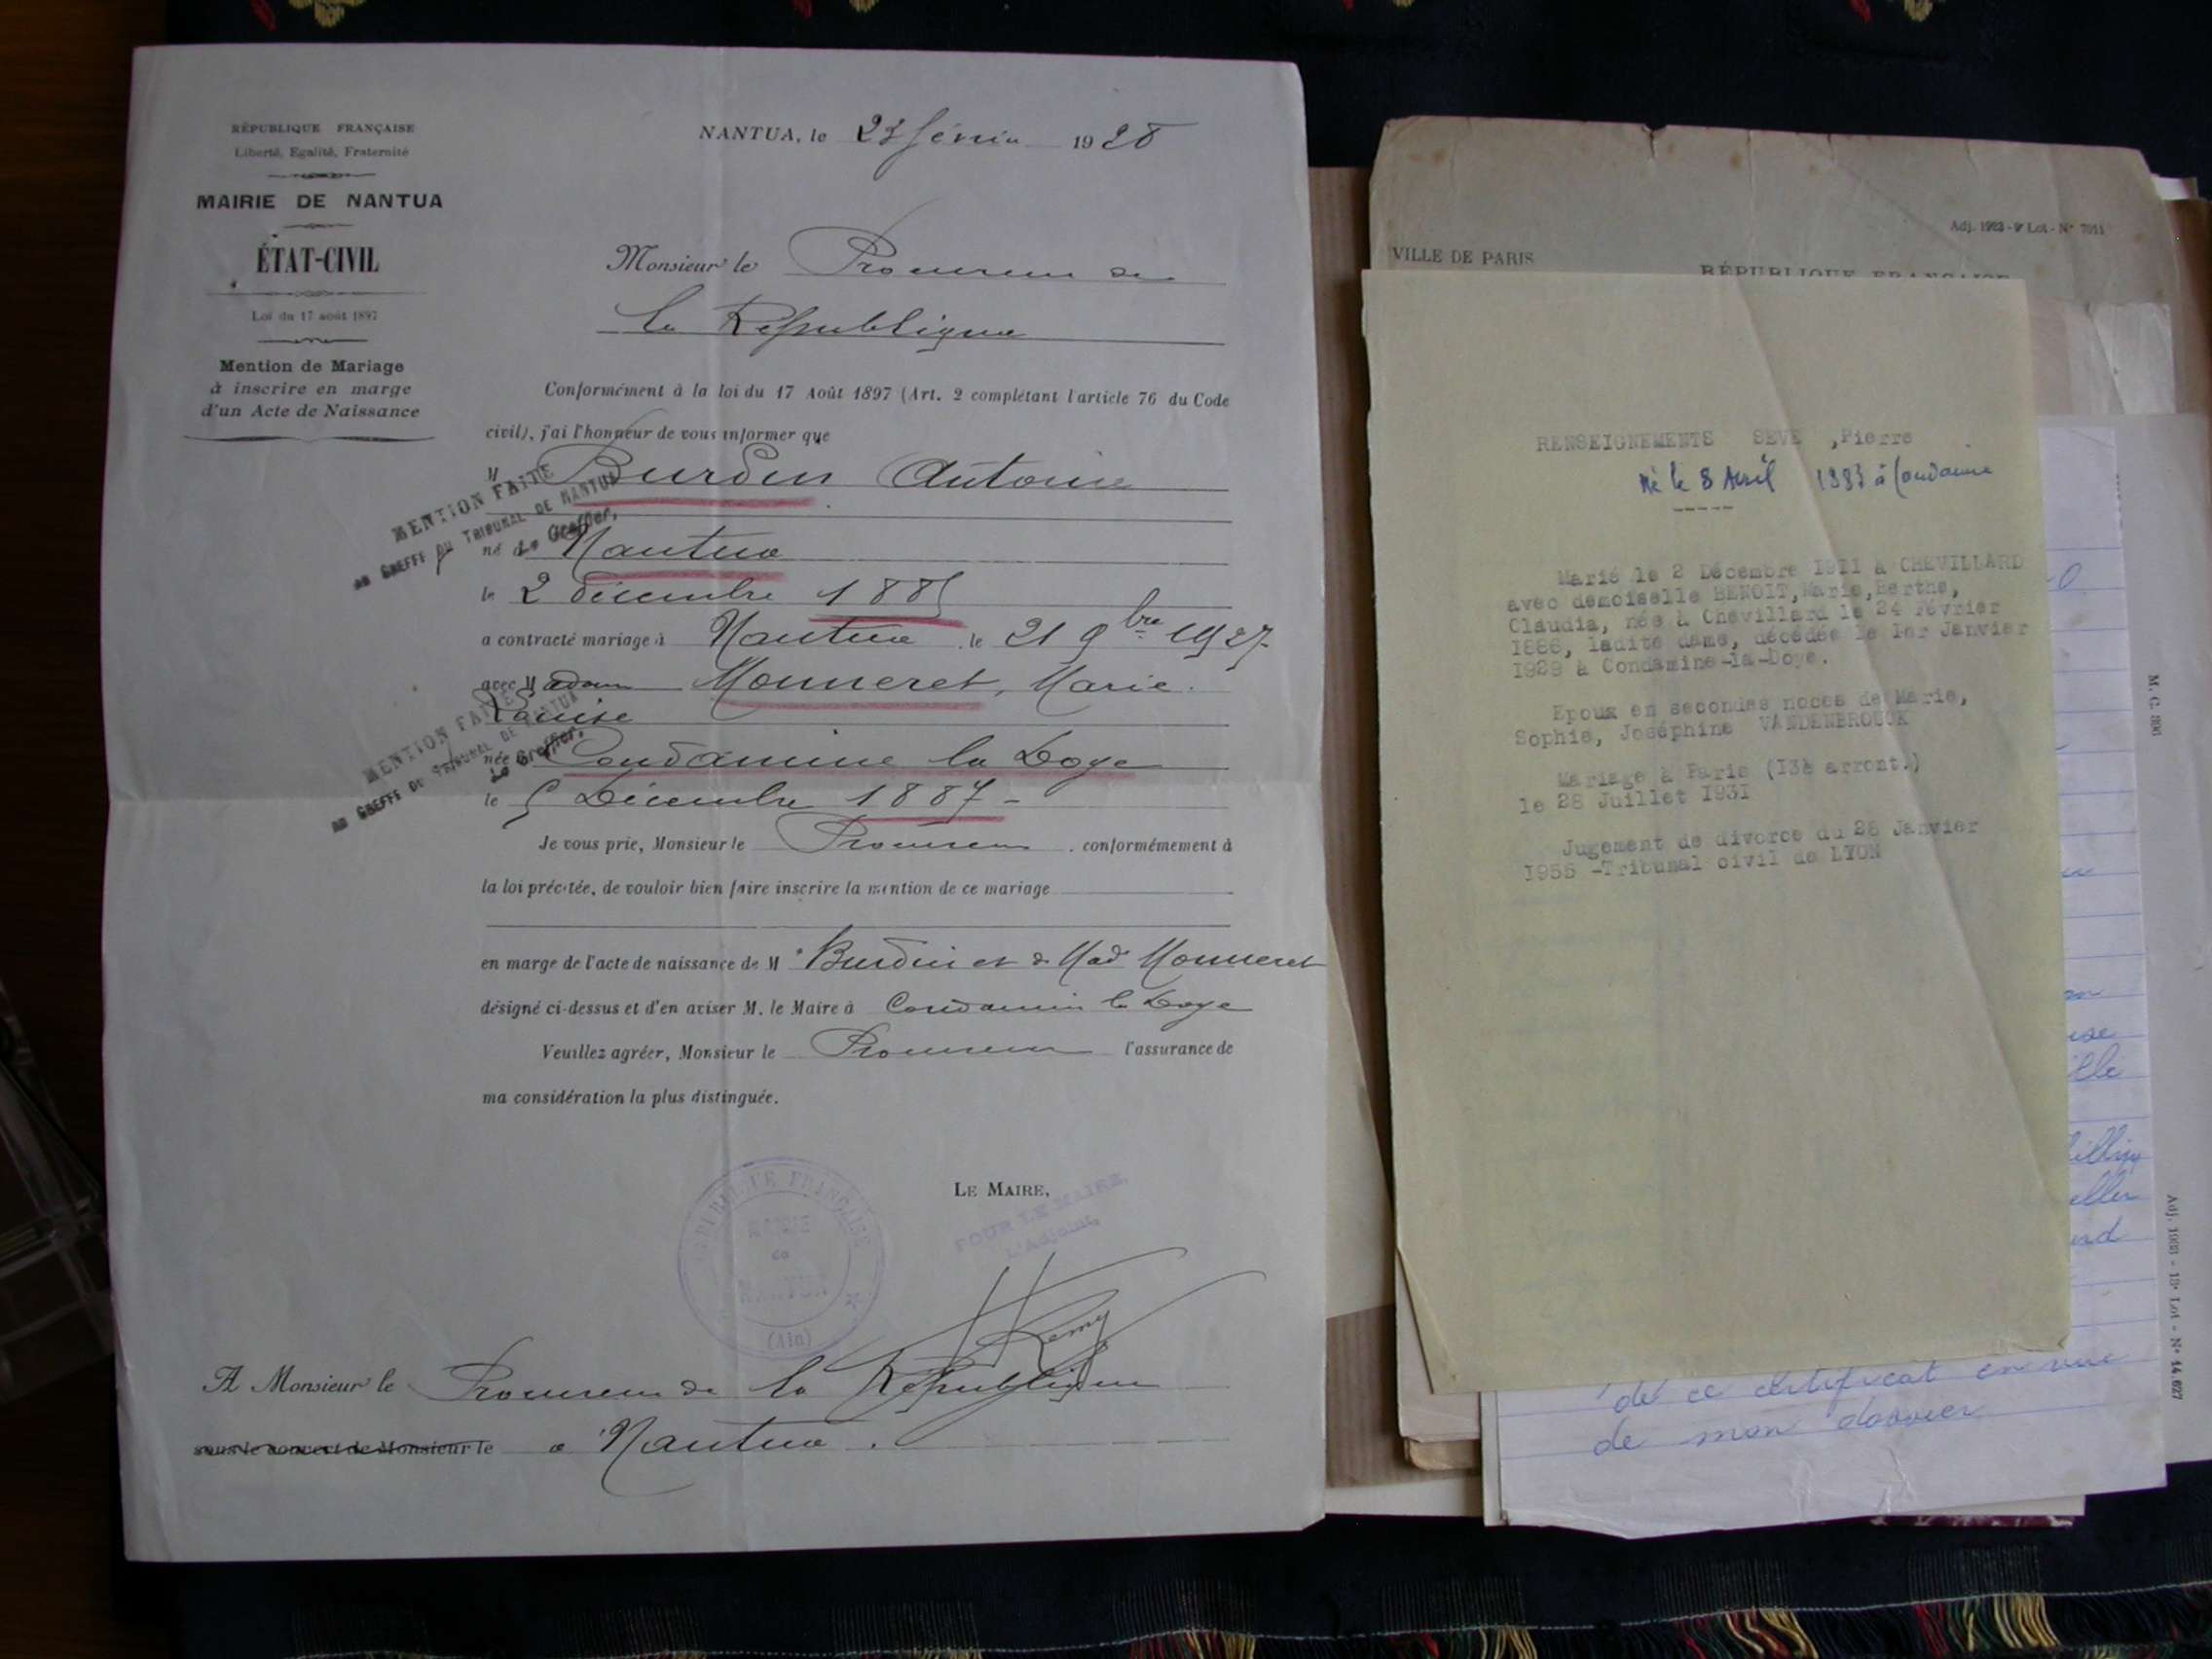 RÉPUBLIQUE FRANÇAISE
Liberté, Egalité, Fraternité
MAIRIE DE NANTUA
ÉTAT-CIVIL
Loi du 17 août 1897
Mention de Mariage
à inscrire en marge
d'un Acte de Naissance
NANTUA, le février 1928
Monsieur le Procureur de
la République
Conformément à la loi du 17 Août 1897 (Art. 2 complétant l'article 76 du Code
civil), j'ai l'honneur de vous informer que
M Burdin Antoine
MENTION FAITE
AU GREFFE DU TRIBUNAL DE NANTUA
Le Greffier,
né à Nantua
le 2 décembre 1885
a contracté mariage à Nantua le 21 9bre 1927
avec Madam Monneret, Marie
Louise
MENTION FAITE
AU GREFFE DU TRIBUNAL DE NANTUA
Le Greffier,
née Condamine la Doye
le 5 Décembre 1887 -
Je vous prie, Monsieur le Procureur, conformémement à
la loi précitée, de vouloir bien faire inscrire la mention de ce mariage
en marge de l'acte de naissance de M Burdin et de Mad Monneret
désigné ci-dessus et d'en aviser M. le Maire à Condamine la Doye
Veuillez agréer, Monsieur le Procureur l'assurance de
ma considération la plus distinguée.
LE MAIRE,
POUR LE MAIRE,
L'Adjoint,
RÉPUBLIQUE FRANÇAISE
MAIRIE
de
NANTUA
(Ain)
Remy
A Monsieur le Procureur de la République
sous le couvert de Monsieur le à Nantua.
Adj. 1923 - 9e Lot - N° 7011
VILLE DE PARIS
RÉPUBLIQUE FRANÇAISE
RENSEIGNEMENTS SEVE ,Pierre
Né le 8 Avril 1887 à Condamine
-----
Marié le 2 Décembre 1911 à CHEVILLARD
avec demoiselle BENOIT,Marie,Berthe,
Claudia, née à Chevillard le 24 Février
1886, ladite dame, décédée le 1er Janvier
1929 à Condamine-la-Doye.
Epoux en secondes noces de Marie,
Sophie, Joséphine VANDENBROUCK
Mariage à Paris (I3è arront.)
le 28 Juillet I93I
Jugement de divorce du 28 Janvier
I955 -Tribunal civil de LYON
M. C. 806
Adj. 1931 - 18e Lot - N° 14.627
de ce certificat en vue
de mon dossier